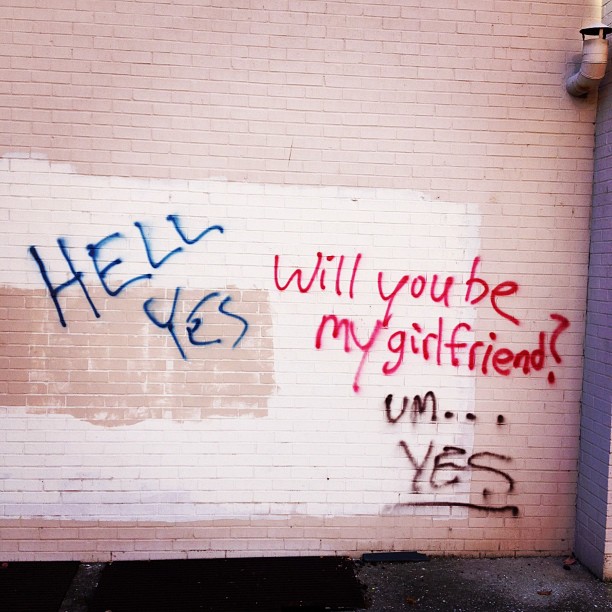 HELL
YES
Will you be
my girlfriend?
UM...
YES